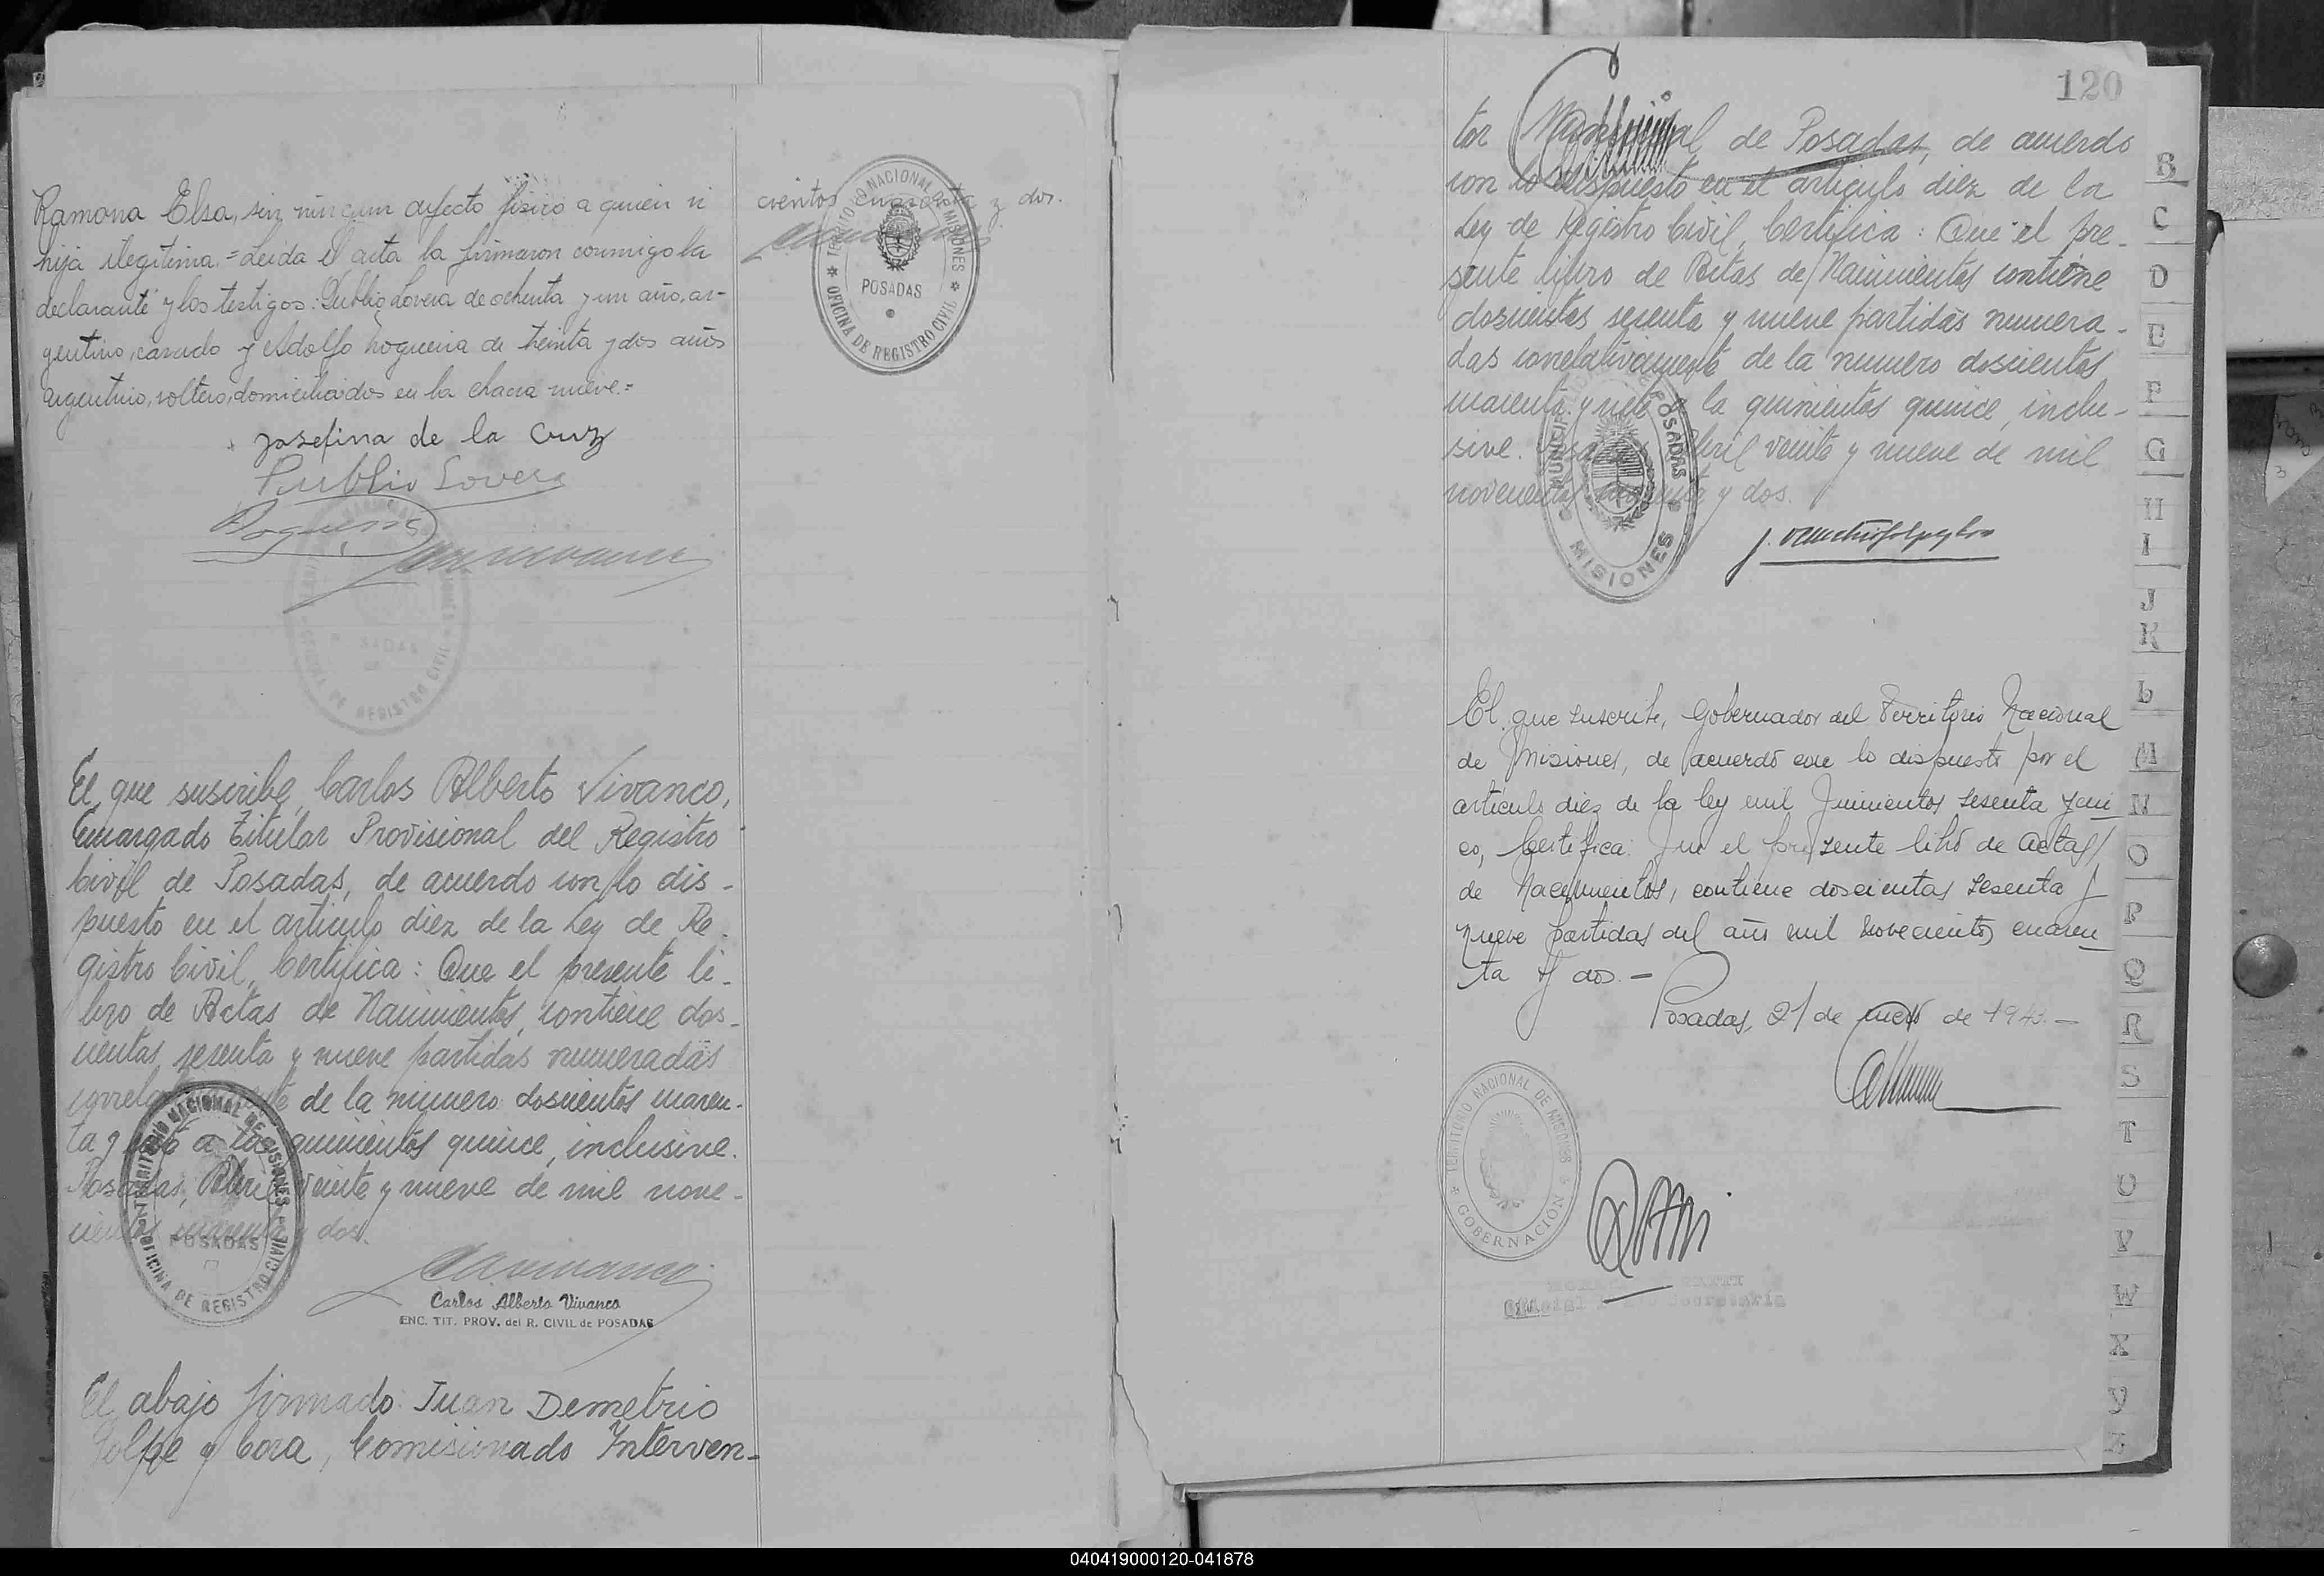 Ramona Elsa, sin ningun defecto fisico a quien
hija ilegitima.=Leida el acta la firmaron conmigo la
declarante y los testigos: Publio Lovera de ochenta y un años, ar-
gentino, casado y Adolfo Noguera de treinta y dos años
argentino, soltero, domiciliados en la chacra nueve.=
Josefina de la Cruz
Publio Lovera
cientos cuarenta y dos.
TERRITORIO NACIONAL DE MISIONES
POSADAS
OFICINA DE REGISTRO CIVIL
El que suscribe, Carlos Alberto Vivanco,
Encargado Titular Provisional del Registro
Civil de Posadas, de acuerdo con lo dis-
puesto en el articulo diez de la Ley de Re-
gistro Civil, Certifica: Que el presente li-
bro de Actas de Nacimientos, contiene dos-
cientas sesenta y nueve partidas numeradas
correlativamente de la numero doscientos cuaren-
ta y siete a la quinientos quince, inclusive.
Posadas, Abril veinte y nueve de mil nove-
cientos cuarenta y dos.
TERRITORIO NACIONAL DE MISIONES
POSADAS
OFICINA DE REGISTRO CIVIL
Carlos Alberto Vivanco
ENC. TIT. PROV. del R. CIVIL de POSADAS
El abajo firmado: Juan Demetrio
Golpe y Cora, Comisionado Interven-
120
tor Municipal de Posadas, de acuerdo
con lo dispuesto en el articulo diez de la
Ley de Registro Civil, Certifica: Que el pre-
sente libro de Actas de Nacimientos contiene
doscientas sesenta y nueve partidas numera-
das correlativamente de la numero doscientos
cuarenta y siete a la quinientos quince, inclu-
sive. Posadas, Abril veinte y nueve de mil
novecientos cuarenta y dos.
MUNICIPALIDAD DE POSADAS
MISIONES
El que suscribe, Gobernador del Territorio Nacional
de Misiones, de acuerdo con lo dispuesto por el
artículo diez de la ley mil quinientos sesenta y cin
co, Certifica: que el presente libro de actas
de Nacimientos, contiene doscientas sesenta y
nueve partidas del año mil novecientos cuaren
ta y dos.-
Posadas, 21 de enero de 1943.-
TERRITORIO NACIONAL DE MISIONES
GOBERNACIÓN
Oficial Secretaría
B
C
D
E
F
G
H
I
J
K
L
M
N
O
P
Q
R
S
T
U
V
W
X
Y
Z
040419000120-041878